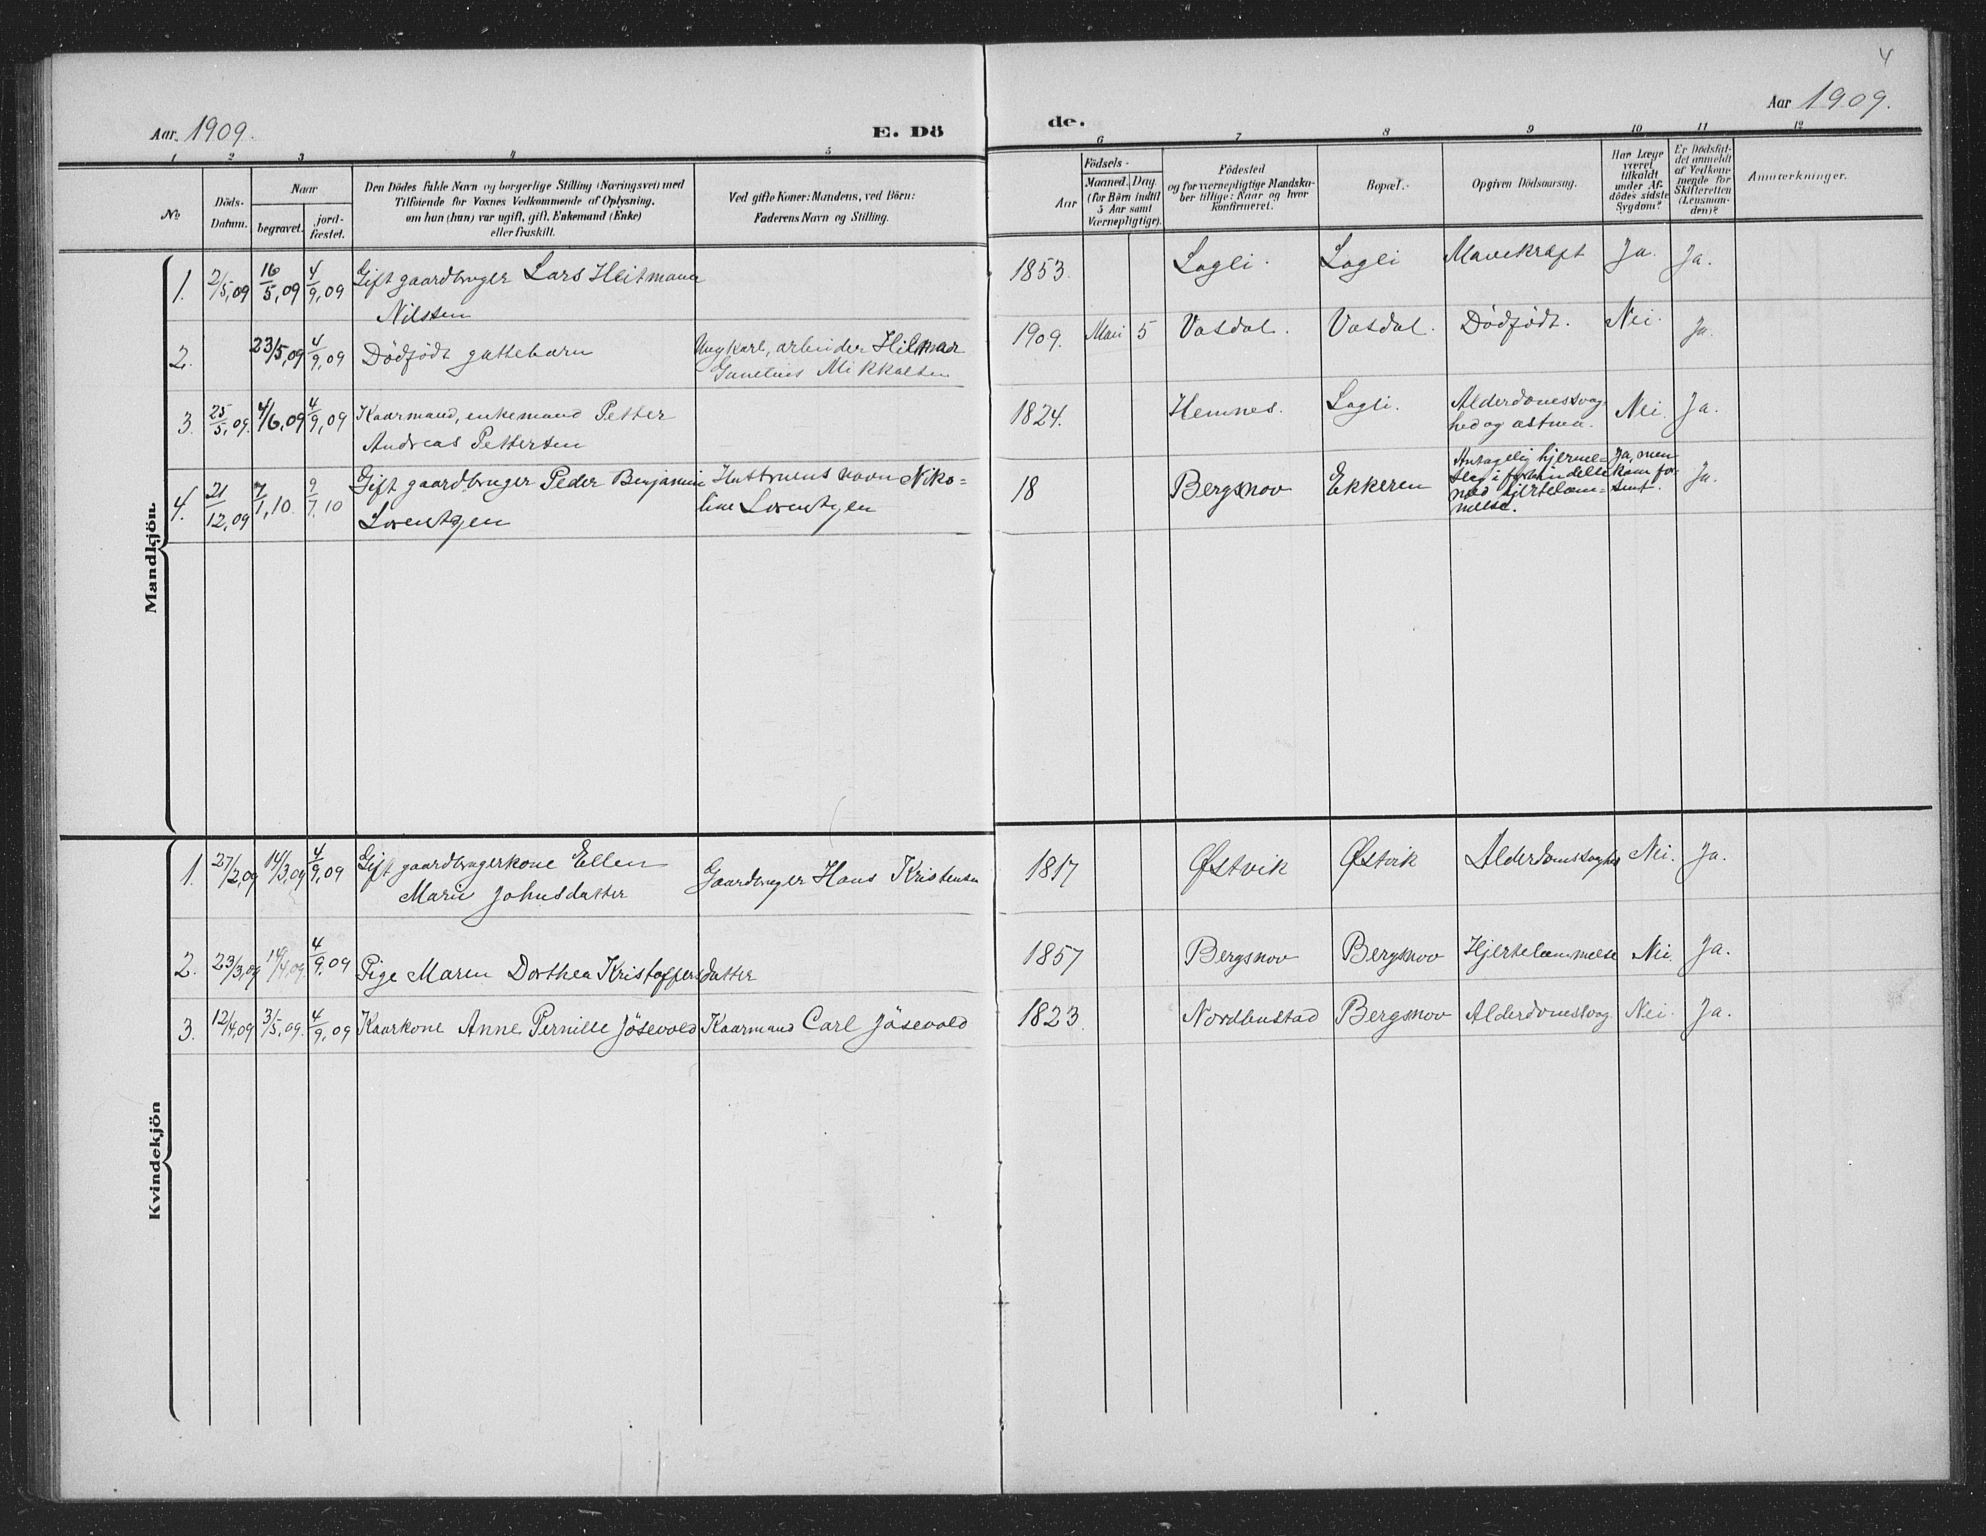 4
Aar 1909.
E. Dö
de.
Aar 1909.
1 2 3 4 5 6 7 8 9 10 11 12
No
Döds-
Datum.
Naar
begravet.
jord-
fæstet.
Den Dödes fulde Navn og borgerlige Stilling (Næringsvei) med
Tilföiende for Voxnes Vedkommende af Oplysning,
om han (hun) var ugift, gift, Enkemand (Enke)
eller fraskilt.
Ved gifte Koner: Mandens, ved Börn:
Faderens Navn og Stilling.
Aar
Födsels-
Maaned. Dag.
(for Börn indtil
5 Aar samt
Værnepligtige).
Födested
og for værnepligtige Mandska-
ber tillige: Naar og hvor
konfirmeret.
Bopæl.
Opgiven Dödsaarsag.
Har Læge
været
tilkaldt
under Af-
dödes sidste
Sygdom?
Er Dödsfal-
det anmeldt
af Vedkom-
mende for
Skifteretten
(Lensman-
den)?
Anmærkninger.
Mandkjön.
1. 2/5,09 16/5,09 4/9,09 Gift gaardbruger Lars Heitmann
Nilssen
1853. Lagli. Lagli Mavekræft Ja. Ja.
2. 23/5,09 4/9,09 Dödfödt guttebarn
Ungkarl, arbeider Hilmar
Mikkalsen
1909. Mai 5 Vasdal. Vasdal. Dödfödt. Nei. Ja.
3. 25/5,09. 4/6,09 4/9,09 Kaarmand, enkemand Petter
Andreas Pettersen
1824. Hemnes. Lagli. Alderdomssvag-
hed og astma. Nei. Ja.
4. 21/12,09 7/1,10. 2/7,10 Gift gaardbruger Peder Benjamin
Lorentzen
Hustruens navn Niko-
line Lorentzen
18 Bergsnov Ekkeren
Antagelig hjerne-
slag i forbindelse
med hjertelam-
melse.
Ja, men
kom for
sent.
Ja.
Kvindekjön
1. 27/2,09 14/3,09 4/9,09 Gift gaardbrugerkone Ellen
Marie Johnsdatter
Gaardbruger Hans Kristensen
1817 Østvik Østvik Alderdomssvaghed Nei. Ja.
2. 23/3,09 14/4,09 4/9,09 Pige Maren Dorthea Kristoffersdatter
1857 Bergsnov Bergsnov Hjertelammelse Nei Ja.
3. 12/4,09 3/5,09. 4/9,09 Kaarkone Anne Pernille Jösevold Kaarmand Carl Jösevold
1823. Nordbustad Bergsnov Alderdomssvag Nei. Ja.